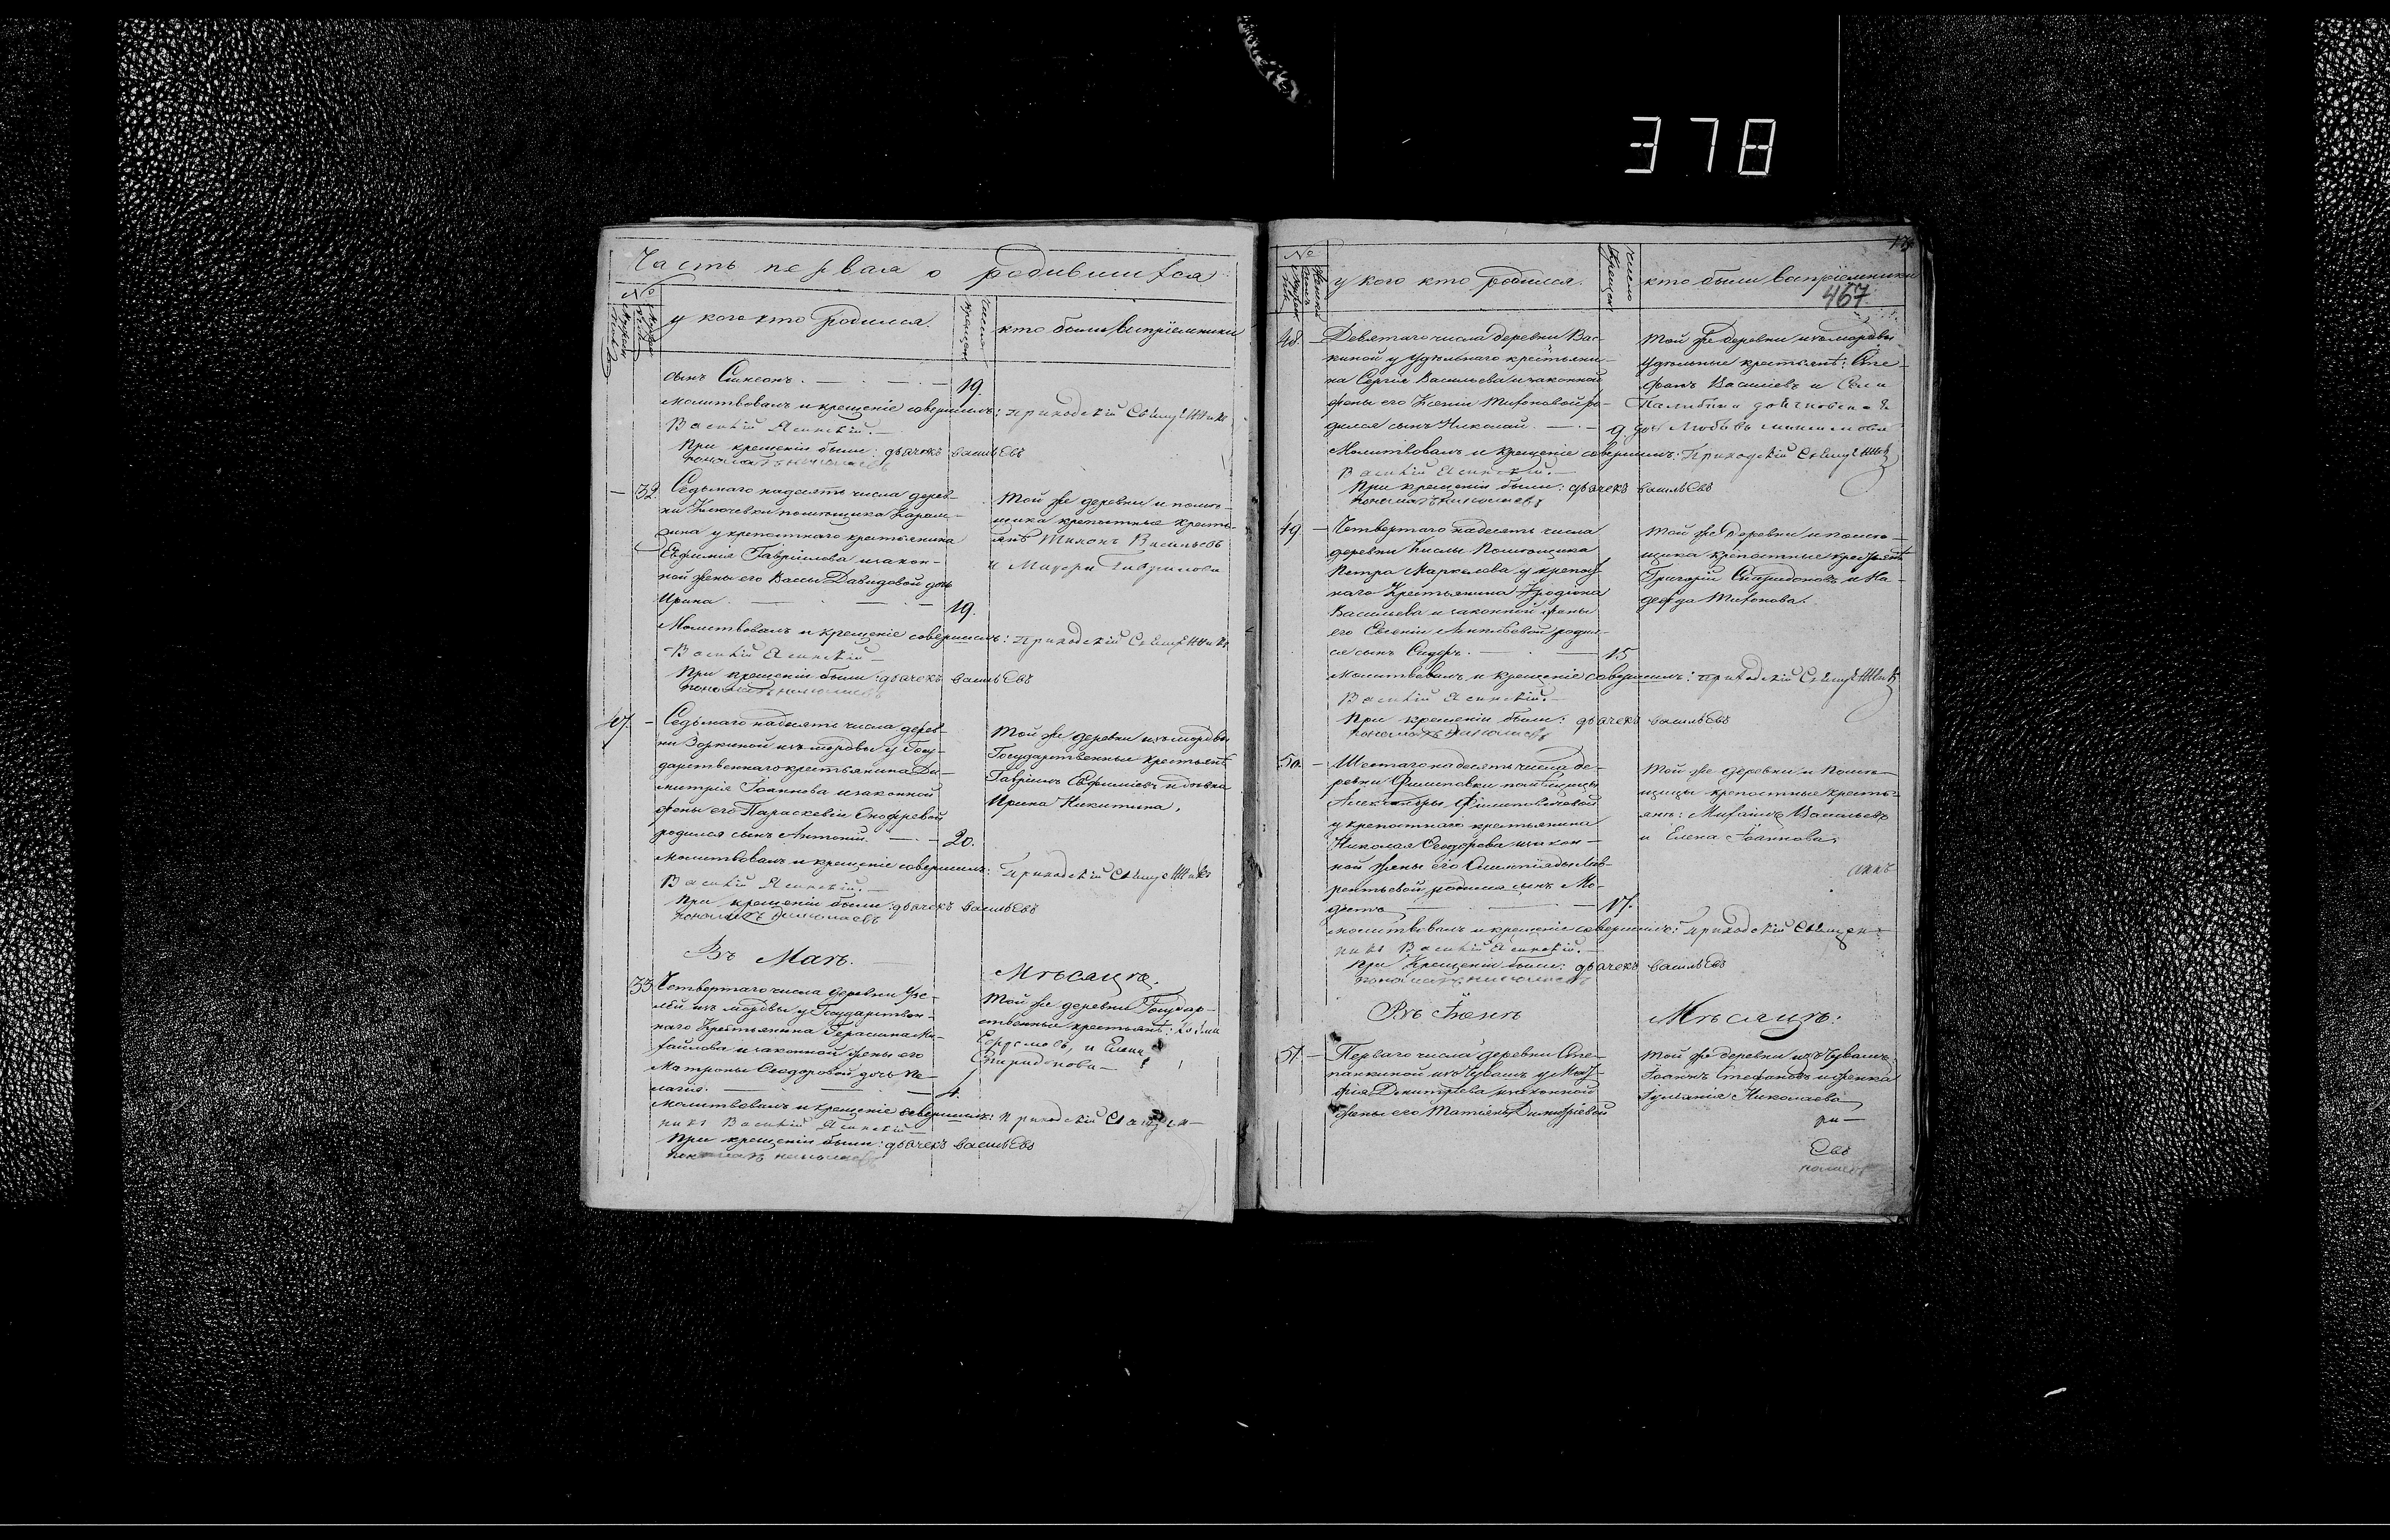 378
Часть первая о родившихся
№
у кого кто родился.
число крещен
кто были восприемники
сынъ Симеонъ. 19.
Молитвовалъ и крещеніе совершилъ: приходскій Священникъ
Василій Ясинскій.
При крещеніи были: дьячекъ Васильевъ
пономарь Николаевъ
32. Седьмаго надесять числа дерев-
ни Ключевки помѣщика Карам-
зина у крепостнаго крестьянина
Евфимія Гавріилова и закон-
ной жены его Вассы Давидовой дочь
Ирина. 19.
Той же деревни и помѣ-
щика крепостные кресть-
янѣ Тихонъ Васильевъ
и Гаврилова
Молитвовалъ и крещеніе совершилъ: приходскій Священникъ
Василій Ясинскій
При крещеніи были: дьячекъ Васильевъ
пономарь Николаевъ
47. Седьмаго надесять числа дерев-
ни Зоркиной изъ мордвы у Госу-
дарственнаго крестьянина Ди-
митрія Іоаннова и законной
жены его Параскевіи Онофревой
родился сынъ Антоній. 20.
Той же деревни изъ мордвы
Государственные крестьянѣ
Гавріилъ Евфиміевъ и дѣвка
Ирина Никитина.
Молитвовалъ и крещеніе совершилъ: Приходскій Священникъ
Василій Ясинскій.
При крещеніи были: дьячекъ Васильевъ
пономарь Николаевъ
Въ Маѣ. Мѣсяцѣ.
33. Четвертаго числа деревни
изъ мордвы у Государствен-
наго Крестьянина Герасима Ми-
хайлова и законной жены его
Матроны Ѳеодоровой дочь Пе-
лагія. 4.
Той же деревни Государ-
ственные крестьянѣ:
и Елена
Спиридонова
Молитвовалъ и крещеніе совершилъ: Приходскій Священ-
никъ Василій Ясинскій
При крещеніи были: дьячекъ Васильевъ
пономарь Николаевъ
467
№
у кого кто родился.
число крещен
кто были восприемники
48. Девятаго числа деревни Вас-
киной у Удѣльнаго крестьяни-
на Сергія Васильева и законной
жены его Ксеніи Тихоновой ро-
дился сынъ Николай. 9.
Той же деревни изъ мордвы
Удѣльные крестьянѣ: Сте-
фанъ Василіевъ и Села
Любовь
Молитвовалъ и крещеніе совершилъ: Приходскій Священникъ
Василій Ясинскій.
При крещеніи были: дьячекъ Васильевъ
пономарь Николаевъ
49. Четвертаго надесять числа
деревни Кислы Помѣщика
Петра Маркелова у крепост-
наго Крестьянина Иродіона
Васильева и законной жены
его Евгеніи родил-
ся сынъ Сидоръ. 15
Той же деревни и помѣ-
щика крепостные крестьянѣ
Григорій Спиридоновъ и На-
дежда Тихонова.
Молитвовалъ и крещеніе совершилъ: приходскій Священникъ
Василій Ясинскій.
При крещеніи были: дьячекъ Васильевъ
пономарь Николаевъ
50. Шестаго надесять числа де-
ревни Филиповки помѣщицы
Александры Филиповичевой
у крепостнаго крестьянина
Николая Ѳеодорова и закон-
ной жены его Олимпіяды Лав-
рентьевой родился сынъ Мо-
дестъ 17.
Той же деревни и Помѣ-
щицы крепостные кресть-
янѣ: Михаилъ Васильевъ
и Елена Іоаннова
Молитвовалъ и крещеніе совершилъ: Приходскій Священ-
никъ Василій Ясинскій.
При Крещеніи были: дьячекъ Васильевъ
пономарь Николаевъ
Въ Іюнѣ Мѣсяцѣ:
51. Перваго числа деревни Сте-
панкиной изъ Чувашъ у
Димитріева и законной
жены его Татіяны Димитріевой
Той же деревни изъ Чувашъ
Іоаннъ Стефановъ и женка
Іуліанія Николаева